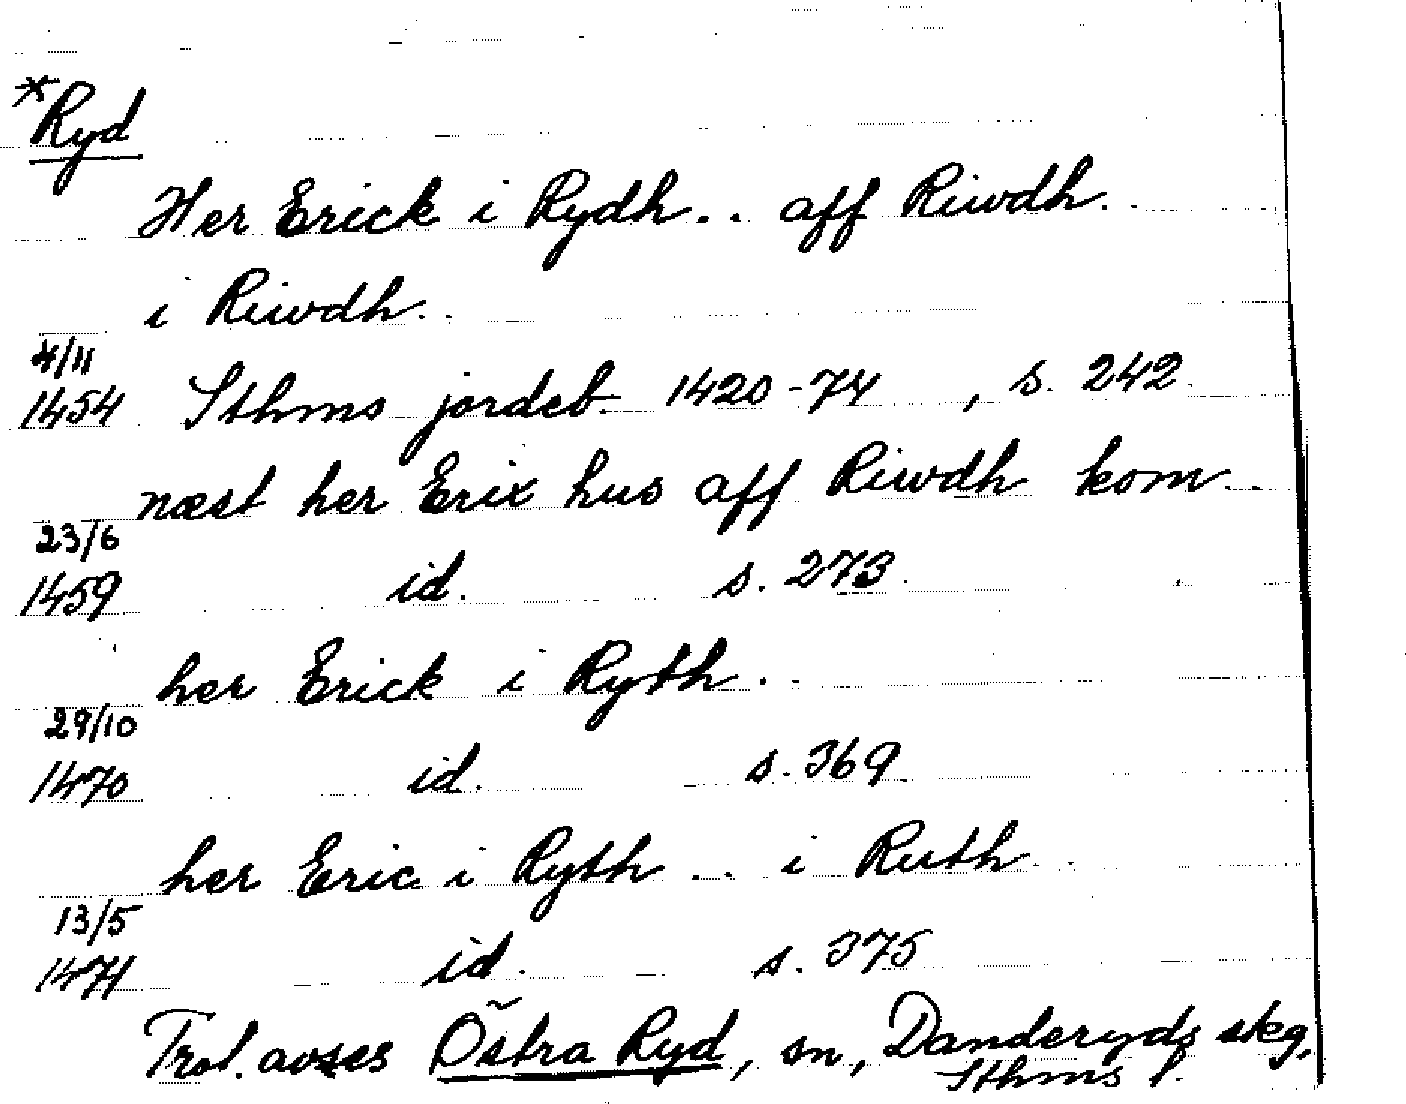 *Ryd
Her Erick i Rydh.. aff Riwdh..
i Riwdh..
4/11
1454 Sthms jordeb 1420-74 , s. 242
næst her Erix hus aff Riwdh kom..
23/6
1459 id. s. 273
her Erick i Ryth..
29/10
1470 id. s. 369
her Eric i Ryth .. i Ruth
13/5
1471 id. s. 375
Trol. avses Östra Ryd, sn, Danderyds skg,
Sthms l.